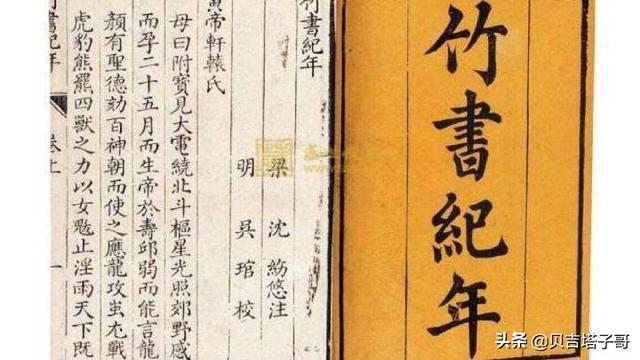 竹書紀年
竹書紀年
梁 沈約 注
明 吳琯 校
黃帝軒轅氏
母曰附寶見大電繞北斗樞星光照郊野感
而孕二十五月而生帝於壽邱弱而能言龍
顏有聖德劾百神朝而使之應龍攻蚩尤戰
虎豹熊羆四獸之力以女魃止淫雨天下既
竹書紀年 卷上 一
头条 @贝吉塔子哥